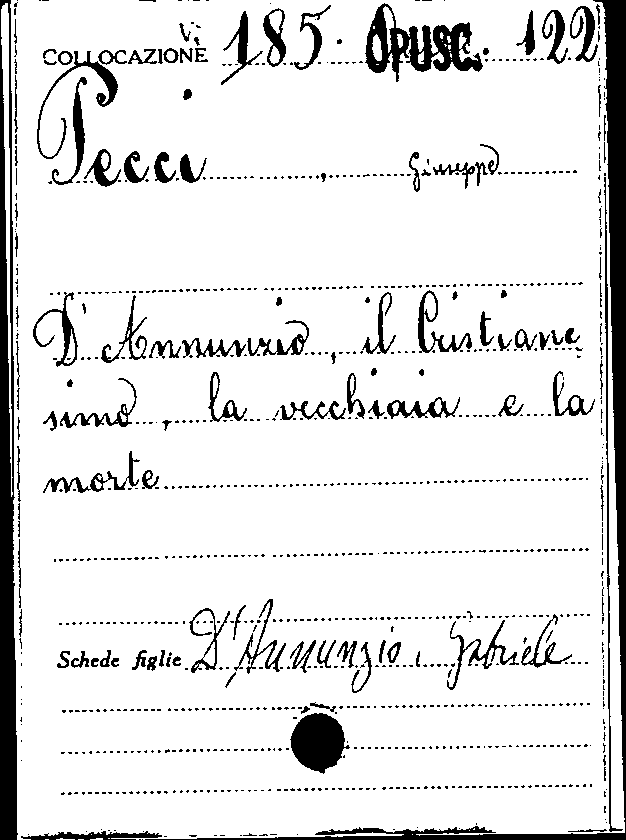 V.
COLLOCAZIONE 185. OPUSC. 122
Pecci, Giuseppe
D'Annunzio, il Cristiane-
simo, la vecchiaia e la
morte
Schede figlie D'Annunzio, Gabriele